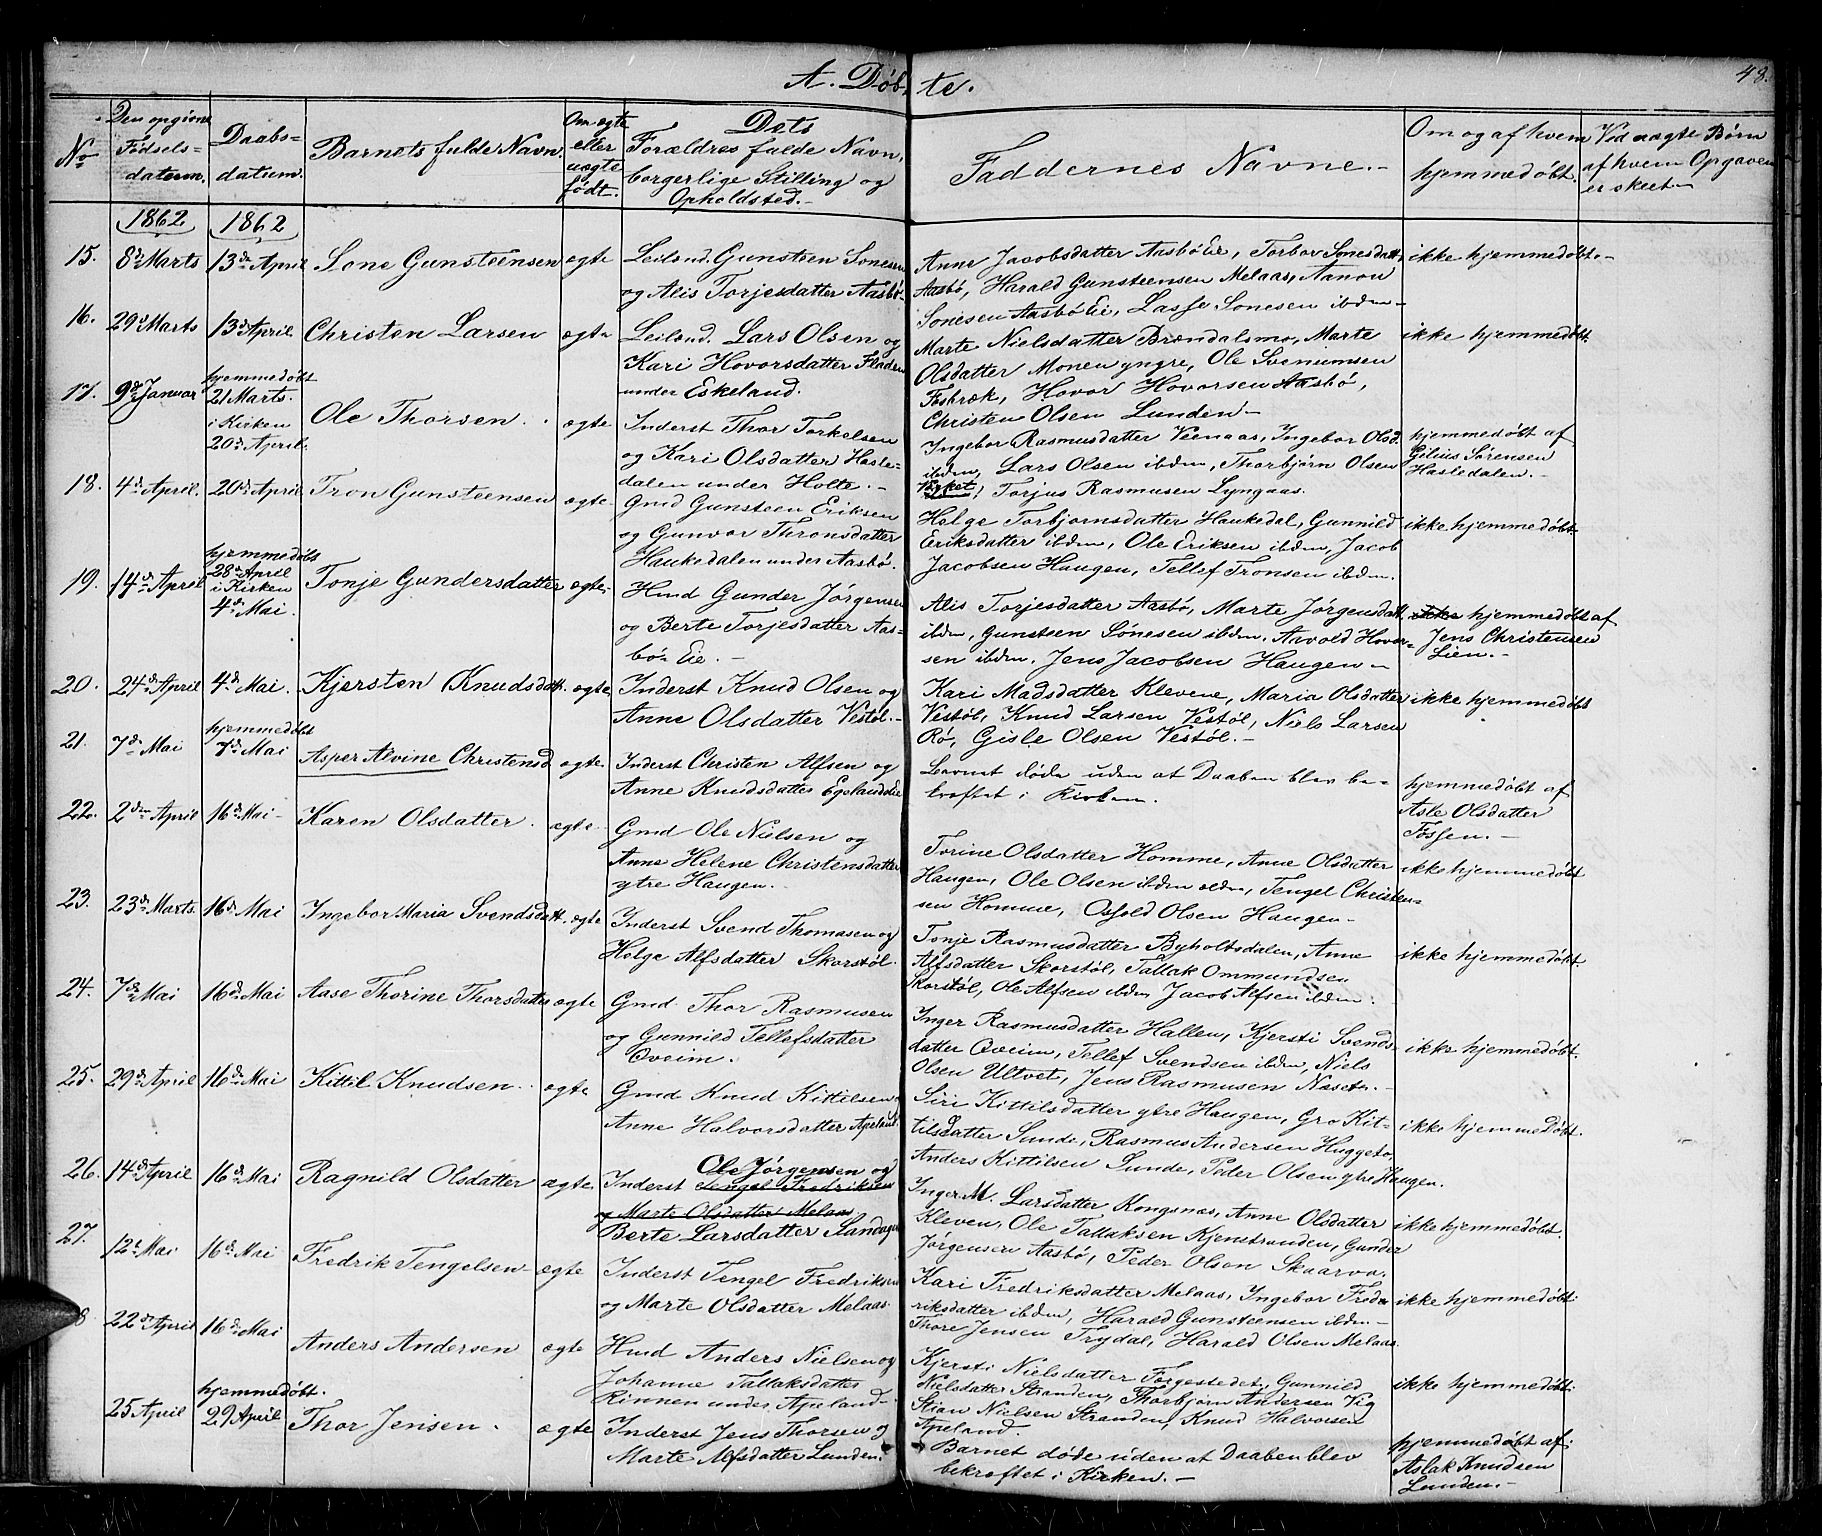 48.
A. Døbte.
No
Den opgivne Fødselsdatum.
Daabsdatum.
Barnets fulde Navn.
Om ægte eller uægte født.
Dets Forældres fulde Navn, borgerlige Stilling og Opholdsted.
Faddernes Navne.
Om og af hvem hjemmedøbt.
Ved uægte Børn af hvem Opgaven er skeet
1862 1862
15. 8de Marts 13de April Sone Gunsteensen ægte
Leilænd. Gunsteen Sonesen
og Alis Torjesdatter Aasbø
Anne Jacobsdatter Aasbø Eie, Torbor Sonesdatt.
Aasbø, Harald Gunsteensen Melaas, Aanon
Sonesen Aasbø Eie, Lasse Sonesen ibdm
ikke hjemmedøbt.
16. 29de Marts 13de April Christen Larsen ægte
Leilænd. Lars Olsen og
Kari Hovorsdatter Fladen
under Eskeland.
Marte Nielsdatter Brændalsmo, Marte
Olsdatter Monen yngre, Ole Svenumsen
Fosbræk, Hovor Hovorsen Aasbø,
Christen Olsen Lunden
ikke hjemmedøbt.
17. 9de Januar hjemmedøbt
21 Marts.
i Kirken
20de April.
Ole Thorsen. ægte
Inderst Thor Torkelsen
og Kari Olsdatter Hasle-
dalen under Holte.
Ingebor Rasmusdatter Veenaas, Ingebor Olsd.
ibdm, Lars Olsen ibdm, Thorbjørn Olsen
Torjus Rasmusen Lyngaas.
hjemmedøbt af
Gilius Sørensen
Hasledalen.
18. 4de April. 20de April Tron Gunsteensen ægte
Gmd Gunsteen Eriksen
og Gunvor Thronsdatter
Haukedalen under Aasbø.
Helge Torbjornsdatter Haukedal, Gunnild
Eriksdatter ibdm, Ole Eriksen ibdm, Jacob
Jacobsen Haugen, Tellef Tronsen ibdm.
ikke hjemmedøbt
19. 14de April hjemmedøbt
28de April
i Kirken
4de Mai.
Tonje Gundersdatter ægte
Hmd Gunder Jörgensen
og Berte Torjesdatter Aas-
bø Eie.
Alis Torjesdatter Aasbø, Marte Jörgensdatt.
ibdm, Gunsteen Sönesen ibdm. Aavold Hovor-
sen ibdm. Jens Jacobsen Haugen
ikke hjemmedøbt af
Jens Christensen
Lien.
20. 24de April 4de Mai. Kjersten Knudsdatt. ægte
Inderst Knud Olsen og
Anne Olsdatter Vestøl.
Kari Madsdatter Klevene, Maria Olsdatter
Vestøl, Knud Larsen Vestøl, Niels Larsen
Rø, Gisle Olsen Vestøl.
ikke hjemmedøbt
21. 7de Mai hjemmedøbt
7de Mai
Asper Alvine Christensd. ægte
Inderst Christen Alfsen og
Anne Knudsdatter Egelandseie
Barnet døde uden at Daaben blev be-
kræftet i Kirken.
hjemmedøbt af
Asle Olsdatter
Fossen.
22. 2den April 16de Mai Karen Olsdatter. ægte
Gmd Ole Nielsen og
Anne Helene Christensdatter
ytre Haugen.
Torine Olsdatter Homme, Anne Olsdatter
Haugen, Ole Olsen ibdm ældre, Tengel Christen-
sen Homme, Osfold Olsen Haugen
ikke hjemmedøbt
23. 23de Marts. 16de Mai Ingebor Maria Svendsdatt. ægte
Inderst Svend Thomasen og
Helge Alfsdatter Skorstøl.
Tonje Rasmusdatter Byholtsdalen, Anne
Alfsdatter Skorstøl, Tallak Ommundsen
Skorstøl, Ole Alfsen ibdm Jacob Alfsen ibdm.
ikke hjemmedøbt.
24. 7de Mai 16de Mai Aase Thorine Thorsdatter ægte
Gmd Thor Rasmusen
og Gunnild Tellefsdatter
Oveim.
Inger Rasmusdatter Hallen, Kjersti Svends-
datter Oveim, Tellef Svendsen ibdm, Niels
Olsen Ultvet, Jens Rasmusen Næset.
ikke hjemmedøbt.
25. 29de April 16de Mai Kittil Knudsen. ægte
Gmd Knud Kittilsen
Anne Halvorsdatter Apeland.
Siri Kittilsdatter ytre Haugen, Gro Kit-
tilsdatter Sunde, Rasmus Andersen Huggeto,
Anders Kittilsen Sunde, Peder Olsen ytre Haugen.
ikke hjemmedøbt.
26. 14de April 16de Mai Ragnild Olsdatter ægte
Ole Jörgensen og
Inderst Tengel Fredriksen
og Marte Olsdatter Melaas
Berte Larsdatter Sandager
Inger M. Larsdatter Kongsnæs, Anne Olsdatter
Kleven, Ole Tallaksen Kjenstranden, Gunder
Jörgensen Aasbø, Peder Olsen Skaarva.
ikke hjemmedøbt.
27. 12de Mai 16de Mai Fredrik Tengelsen ægte
Inderst Tengel Fredriksen
og Marte Olsdatter Melaas.
Kari Fredriksdatter Melaas, Ingebor Fred-
riksdatter ibdm, Harald Gunsteensen ibdm
Thore Jensen Trydal, Harald Olsen Melaas.
ikke hjemmedøbt.
8 22de April 16de Mai Anders Andersen ægte
Hmd Anders Nielsen og
Johanne Tallaksdatter
Rinnen under Apeland
Kjersti Nielsdatter Torgestedet, Gunnild
Nielsdatter Stranden, Thorbjørn Andersen Vig
Stian Nielsen Stranden, Knud Halvorsen
Apeland.
ikke hjemmedøbt.
25 April hjemmedøbt.
29 April
Thor Jensen. ægte
Inderst Jens Thorsen og
Marte Alfsdatter Lunden.
Barnet døde uden at Daaben blev
bekræftet i Kirken.
hjemmedøbt af
Aslak Knudsen
Lunden.